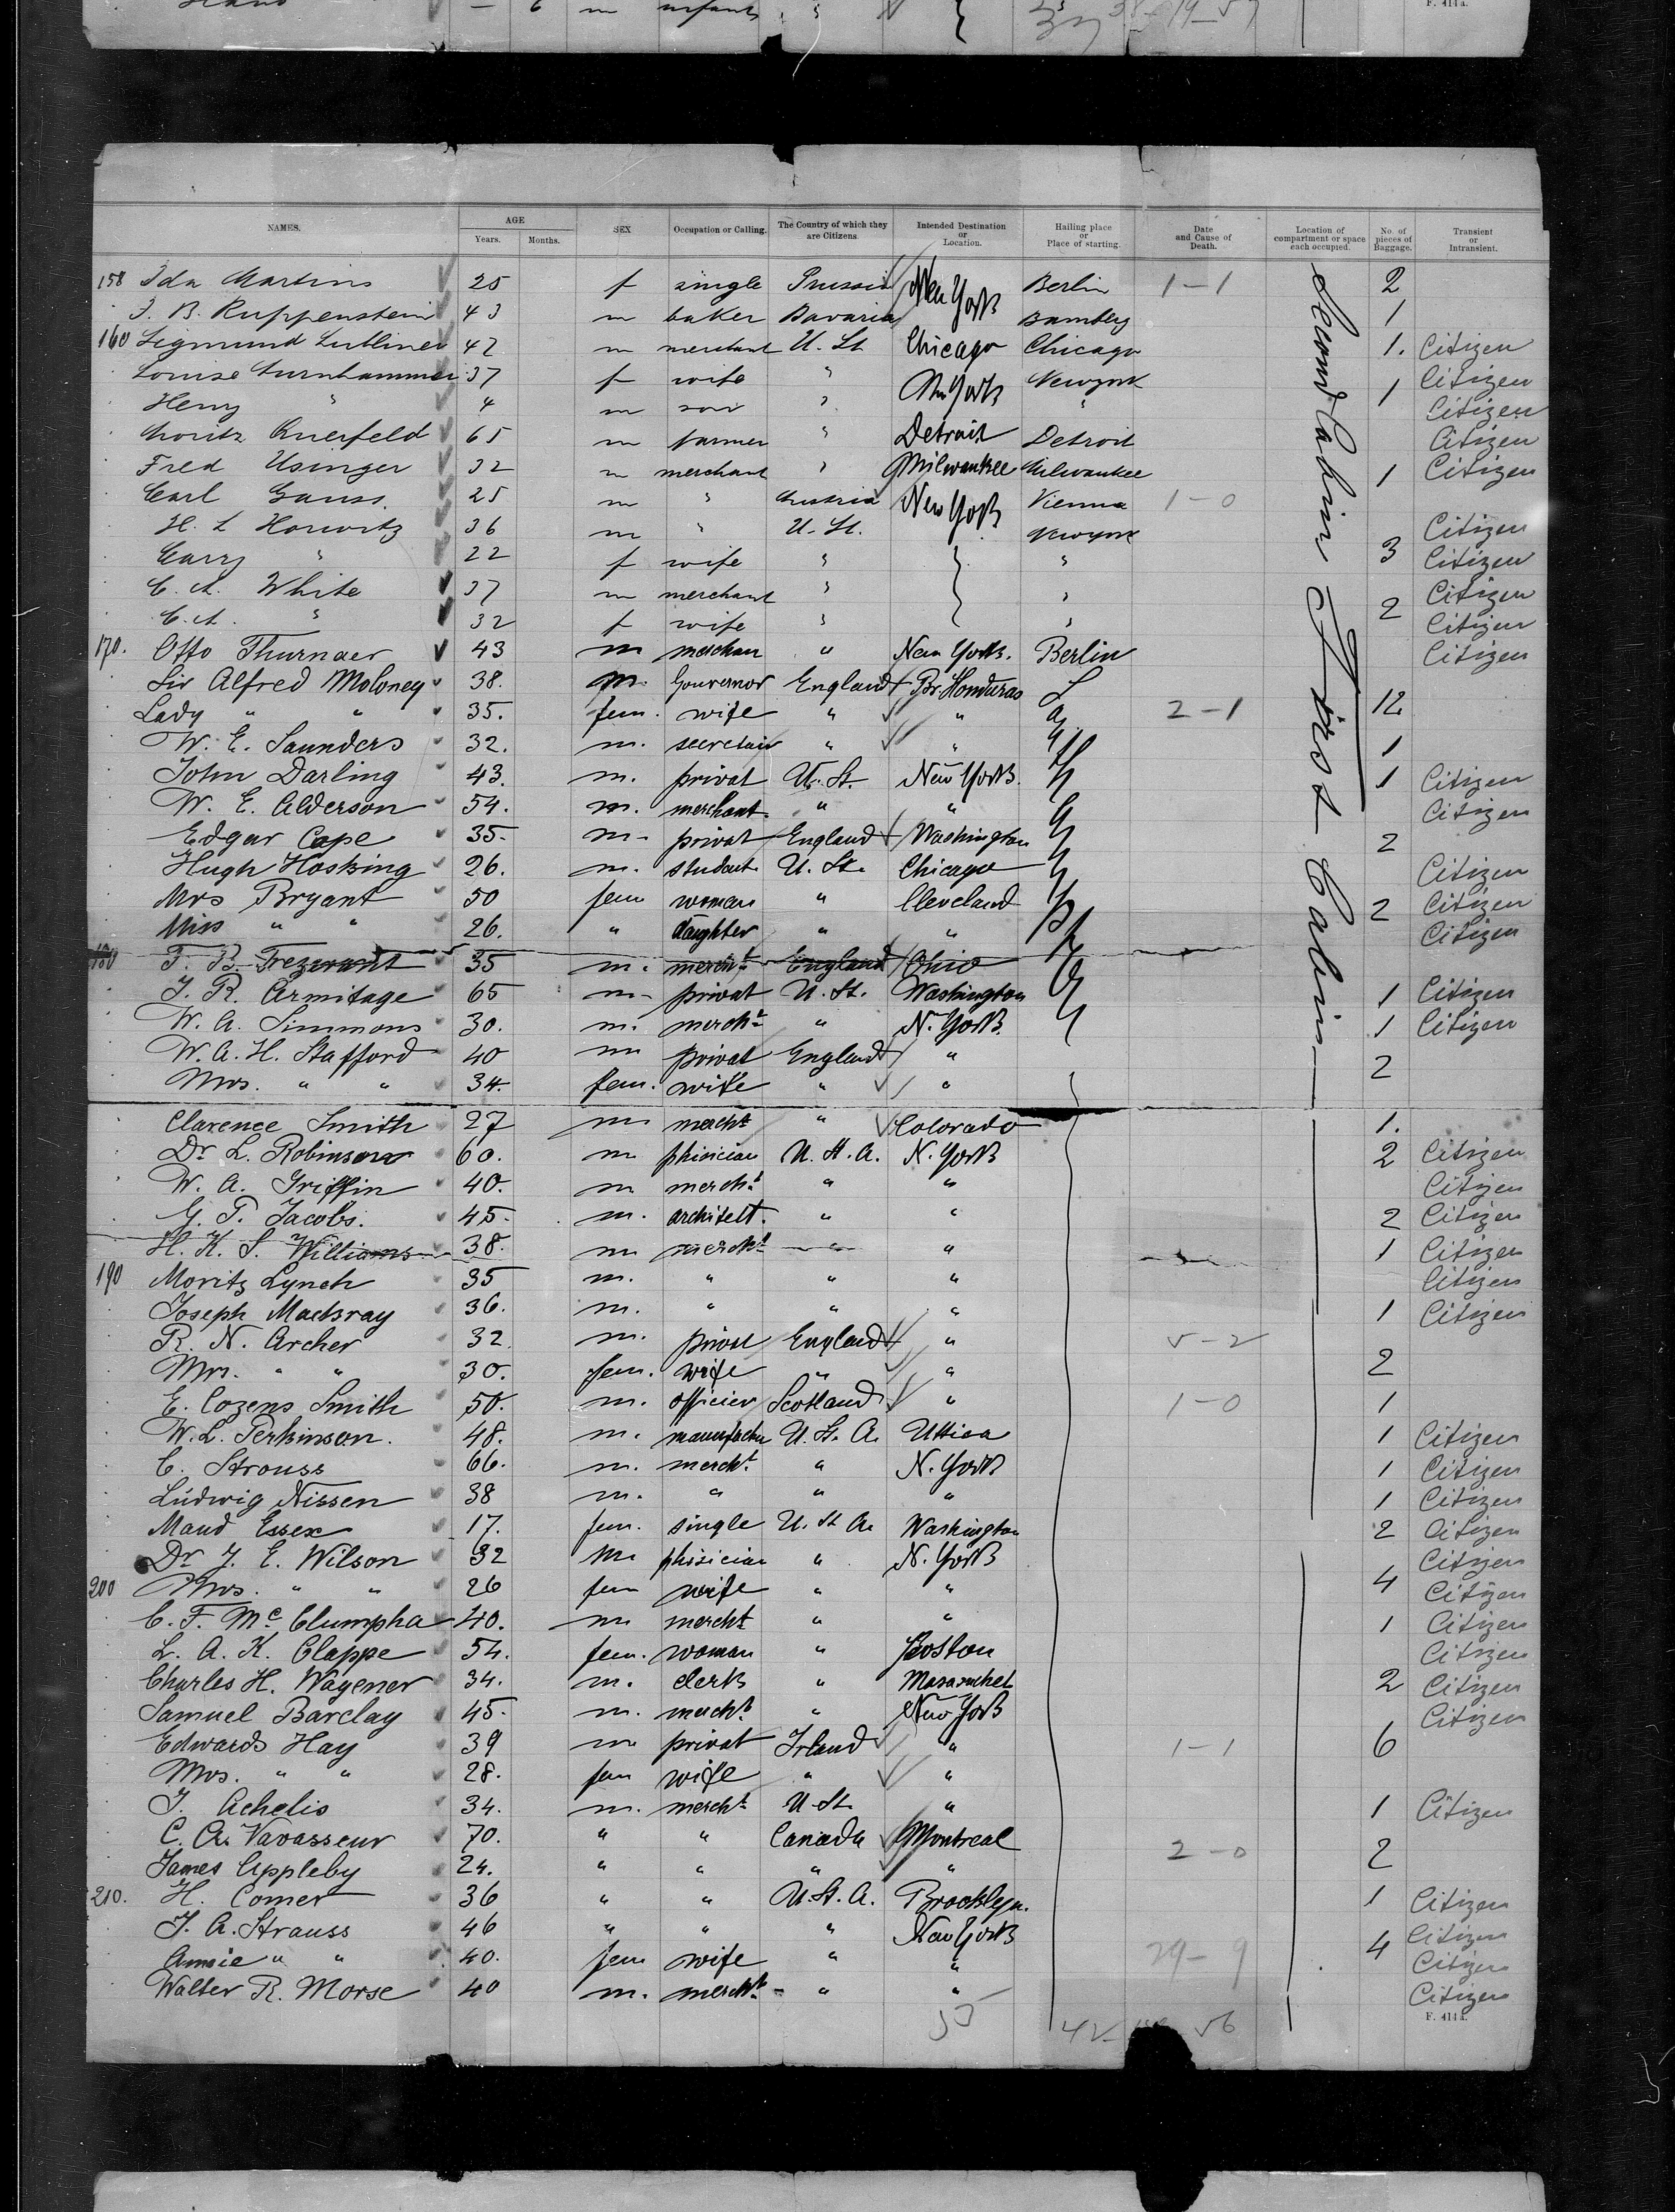 m infant
F. 411a.
NAMES. AGE Years. Months. SEX Occupation or Calling. The Country of which they are Citizens. Intended Destination or Location. Hailing place or Place of starting. Date and Cause of Death. Location of compartment or space each occupied. No. of pieces of Baggage. Transient or Intransient.
Second Cabin
First Cabin
158 Ida Martins 25 f single Prussia New York Berlin 1-1 2
J. B. Ruppenstein 43 m baker Bavaria Bamberg 1
160 Sigmund Lubliner 42 m merchant U. St. Chicago Chicago 1. Citizen
Louise 37 f wife " New York Newyork 1 Citizen
Henry " 4 m son " " Citizen
Moritz Querfeld 65 m farmer " Detroit Detroit Citizen
Fred Usinger 32 m merchant " Milwaukee Milwaukee 1 Citizen
Carl Gauss 25 m " Austria New York Vienna 1-0
H. L. Horwitz 36 m " U. St. Newyork Citizen
Carry " 22 f wife " " 3 Citizen
C. A. White 37 m merchant " " Citizen
C. A. " 32 f wife " " 2 Citizen
170. Otto Thurnaer 43 m merchan " New York. Berlin Citizen
Sir Alfred Moloney 38. m. Gouvernor England Br. Honduras 12
Lady " " 35. fem. wife " " 2-1
W. E. Saunders 32. m. secretair " " 1
John Darling 43. m. privat U. St. New York. 1 Citizen
W. E. Alderson 54. m. merchant " " Citizen
Edgar Cape 35. m. privat England Washington 2
Hugh Hosking 26. m. student U. St. Chicago Citizen
Mrs Bryant 50 fem woman " Cleveland 2 Citizen
Miss " " 26. " daughter " " Citizen
180 F. B. Trezevant 35 m. mercht England Ohio
J. R. Armitage 65 m. privat U. St. Washington 1 Citizen
W. A. Simmons 30. m. mercht " N. York 1 Citizen
W. A. H. Stafford 40 m privat England " 2
Mrs. " " 34. fem. wife " "
Clarence Smith 27 m mercht " Colorado 1.
Dr L. Robinson 60. m phisician U. St. A. N. York 2 Citizen
W. A. Griffin 40. m mercht " " Citizen
G. T. Jacobs. 45. m. architekt. " " 2 Citizen
H. K. S. Williams 38. m mercht " " 1 Citizen
190 Moritz Lynch 35 m. " " " Citizen
Joseph Mackray 36. m. " " " 1 Citizen
R. N. Archer 32. m. privat England " 5-2
Mrs. " " 30. fem. wife " " 2
E. Cozens Smith 50. m. officier Scotland " 1-0 1
W. L. Perkinson. 48. m. U. St. A. Uttica 1 Citizen
C. Strouss 66. m. mercht " N. York 1 Citizen
Ludwig Nissen 38 m. " " " 1 Citizen
Maud Essex 17. fem. single U. St. A. Washington 2 Citizen
Dr J. E. Wilson 32 m phisician " N. York Citizen
200 Mrs. " " 26 fem wife " " 4 Citizen
C. F. Mc Clumpha 40. m mercht " " 1 Citizen
L. A. K. Clappe 54. fem. woman " Boston Citizen
Charles H. Wagener 34. m. clerk " Masaschet 2 Citizen
Samuel Barclay 45. m. mercht " New York Citizen
Edwards Hay 39 m privat Irland " 1-1 6
Mrs. " " 28. fem wife " "
J. Achelis 34. m. mercht U. St. " 1 Citizen
C. A. Vavasseur 70. " " Canada Montreal 2-0 2
James Appleby 24. " " " "
210. H. Comer 36 " " U. St. A. Brooklyn. 1 Citizen
J. A. Strauss 46 " " " New York 4 Citizen
Annie " " 40. fem wife " " 29-9 Citizen
Walter R. Morse 40 m. mercht " " Citizen
55
F. 411a.